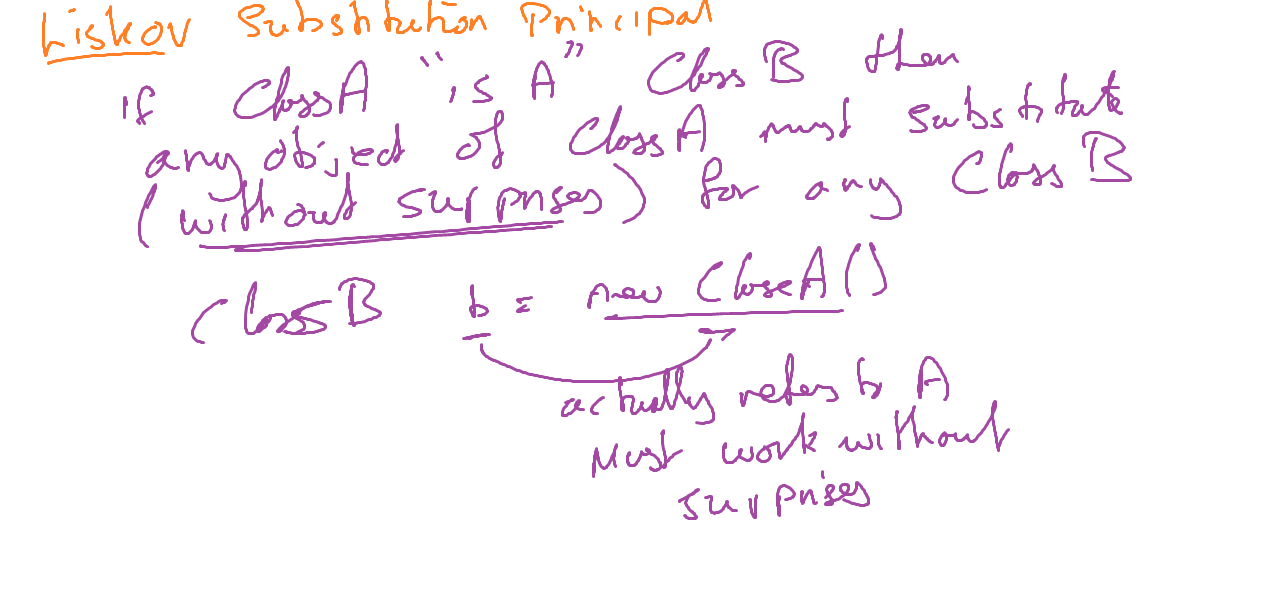 Liskov Substitution Principal
If ClassA "is A" Class B then
any object of ClassA must substitute
(without surprises) for any Class B
ClassB b = new ClassA()
actually refers to A
Must work without
surprises